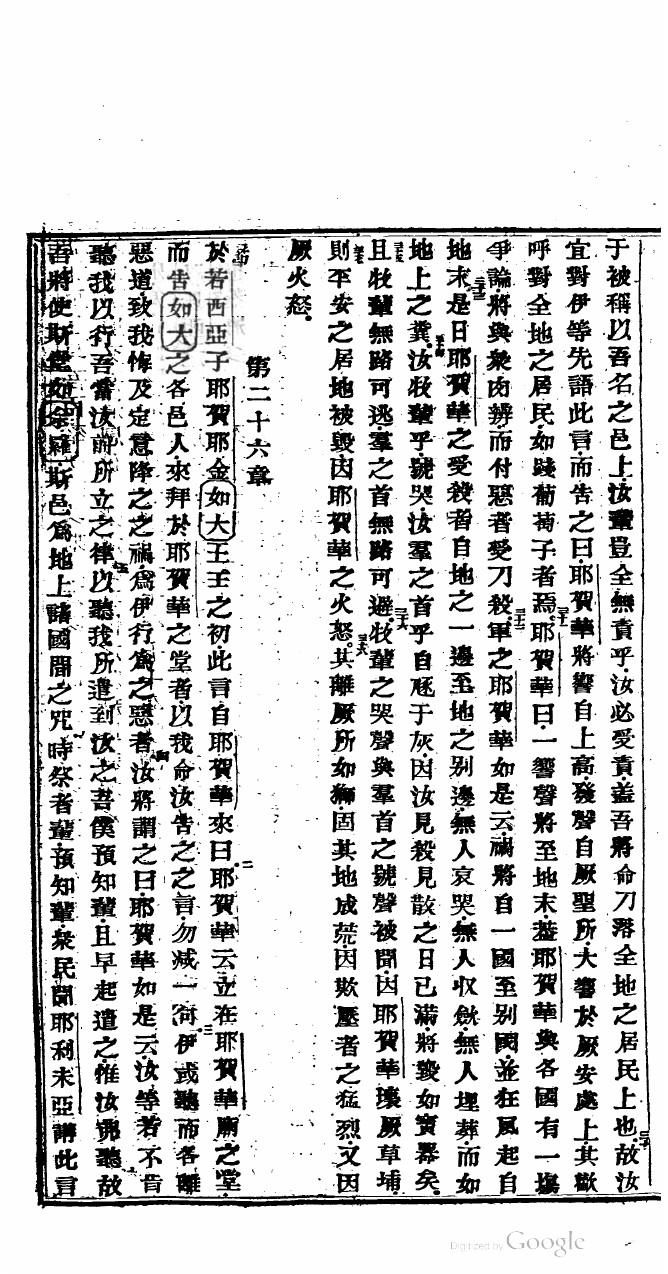 于被稱以吾名之邑上汝輩豈全無責乎汝必受責蓋吾將命刀落全地之居民上也三十故汝
宜對伊等先語此言而告之曰耶賀華將響自上高發聲自厥聖所大響於厥安處上其歡
呼對全地之居民如踐葡萄子者焉三十一耶賀華曰一響聲將至地末蓋耶賀華與各國有一塲
爭論將與衆肉辨而付惡者受刀殺三十二軍之耶賀華如是云禍將自一國至別國並狂風起自
地末三十三是日耶賀華之受殺者自地之一邊至地之別邊無人哀哭無人收斂無人埋葬而如
地上之糞三十四汝牧輩乎號哭汝羣之首乎自胚于灰因汝見殺見散之日已滿將毀如寶器矣
三十五且牧輩無路可逃羣之首無路可避三十六牧輩之哭聲與羣首之號聲被聞因耶賀華壞厥草埔
三十七則平安之居地被毀因耶賀華之火怒三十八其離厥所如獅固其地成荒因欺壓者之猛烈又因
厥火怒
第二十六章
一節於若西亞子耶賀耶金如大王王之初此言自耶賀華來曰二耶賀華云立在耶賀華廟之堂
而告如大之各邑人來拜於耶賀華之堂者以我命汝告之之言勿減一句三伊或聽而各離
惡道致我悔及定意降之之禍爲伊行爲之惡者四汝將謂之曰耶賀華如是云汝等若不肯
聽我以行吾當汝前所立之律五以聽我所遣到汝之吾僕預知輩且早起遣之惟汝弗聽六故
吾將使斯堂如 羅 斯邑爲地上諸國間之咒時七祭者輩預知輩衆民聞耶利未亞講此言
Digitized by Google